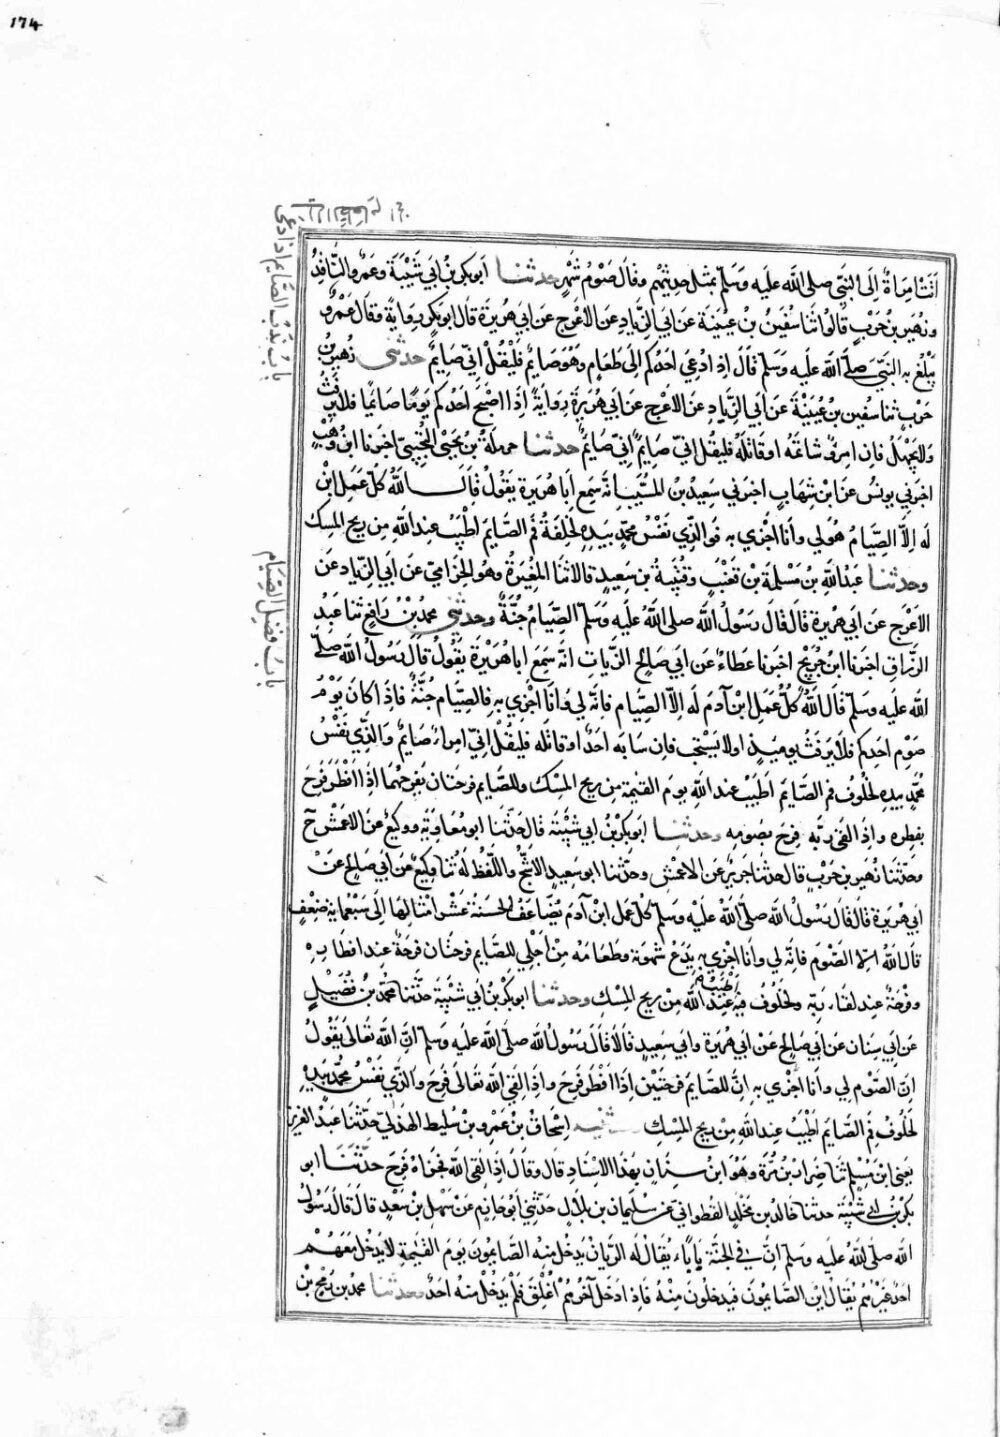 174
باب ندب الصايم اذا دعي
اتت امرأة إلى النبي صلى الله عليه وسلم بمثل حديثهم وقال صوم شهر حدثنا ابو بكر بن أبي شيبة وعمرو الناقد
وزهير بن حرب قالوا ثنا سفين بن عيينة عن ابي الزياد عن الاعرج عن ابي هريرة قال ابو بكر رواية وقال عمرو
يبلغ به النبي صلى الله عليه وسلم قال اذا دعي احدكم إلى طعام وهو صايم فليقل اني صايم حدثني زهير بن
حرب ثنا سفين بن عيينة عن ابي الزياد عن الاعرج عن ابي هريرة رواية اذا اصبح احدكم يوما صائما فلا يرفث
ولا يجهل فان امرؤ شاتمه او قاتله فليقل اني صايم اني صايم حدثنا حرملة بن يحيى التجيبي اخبرنا ابن وهب
اخبرني يونس عن ابن شهاب اخبرني سعيد بن المسيب انه سمع أبا هريرة يقول قال الله كل عمل ابن
له الا الصيام هو لي وأنا اجزي به فوالذي نفس محمد بيده لخلفة فم الصايم اطيب عند الله من ريح المسك
باب فضل الصيام
وحدثنا عبد الله بن مسلمة بن قعنب وقتيبة بن سعيد قالا ثنا المغيرة وهو الحزامي عن ابي الزياد عن
الاعرج عن ابي هريرة قال قال رسول الله صلى الله عليه وسلم الصيام جنة وحدثني محمد بن رافع ثنا عبد
الرزاق اخبرنا ابن جريج اخبرنا عطاء عن ابي صالح الزيات انه سمع ابا هريرة يقول قال رسول الله صلى
الله عليه وسلم قال الله كل عمل ابن آدم له الا الصيام فانه لي وأنا اجزي به فالصيام جنة فاذا كان يوم
صوم احدكم فلا يرفث يوميذ ولا يسخب فان سابه احد او قاتله فليقل اني امرؤ صايم والذي نفس
محمد بيده لخلوف فم الصايم اطيب عند الله يوم القيمة من ريح المسك وللصايم فرحتان يفرحهما اذا افطر فرح
بفطره واذا لقي ربه فرح بصومه وحدثنا ابو بكر بن ابي شيبة قال حدثنا ابو معاوية ووكيع عن الاعمش ح
وحدثنا زهير بن حرب قال حدثنا جرير عن الاعمش وحدثنا ابو سعيد الاشج واللفظ له ثنا وكيع عن ابي صالح عن
ابي هريرة قال قال رسول الله صلى الله عليه وسلم كل عمل ابن آدم يضاعف الحسنة عشر امثالها الى سبعماية ضعف
قال الله الا الصوم فانه لي وأنا اجزي به يدع شهوته وطعامه من اجلي للصايم فرحتان فرحة عند افطاره
وفرحة عند لقاء ربه ولخلوف فيه اطيب عند الله من ريح المسك وحدثنا ابو بكر بن أبي شيبة حدثنا محمد بن فضيل
عن ابي سنان عن ابي صالح عن ابي هريرة وابي سعيد قالا قال رسول الله صلى الله عليه وسلم ان الله تعالى يقول
ان الصوم لي وأنا اجزي به ان للصايم فرحتين اذا افطر فرح واذا لقي الله تعالى فرح والذي نفس محمد بيده
لخلوف فم الصايم اطيب عند الله من ريح المسك اسحاق بن عمرو بن سليط الهذلي حدثنا عبد العزيز
يعني ابن مسلم ثنا ضرار بن مرة وهو ابو سنان بهذا الاسناد قال وقال اذا لقي الله فجزاه فرح حدثنا ابو
بكر بن ابي شيبة حدثنا خالد بن مخلد القطواني عن سليمان بن بلال حدثني أبو حازم عن سهل بن سعد قال قال رسول
الله صلى الله عليه وسلم ان في الجنة بابا يقال له الريان يدخل منه الصايمون يوم القيمة لا يدخل معهم
احد غيرهم يقال اين الصايمون فيدخلون منه فاذا دخل آخرهم اغلق فلم يدخل منه احد وحدثنا محمد بن رمح بن